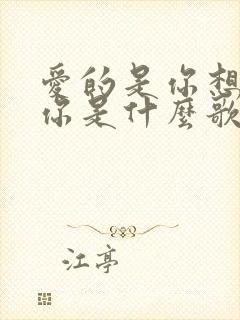 愛的是你想
你是什麼歌
江亭